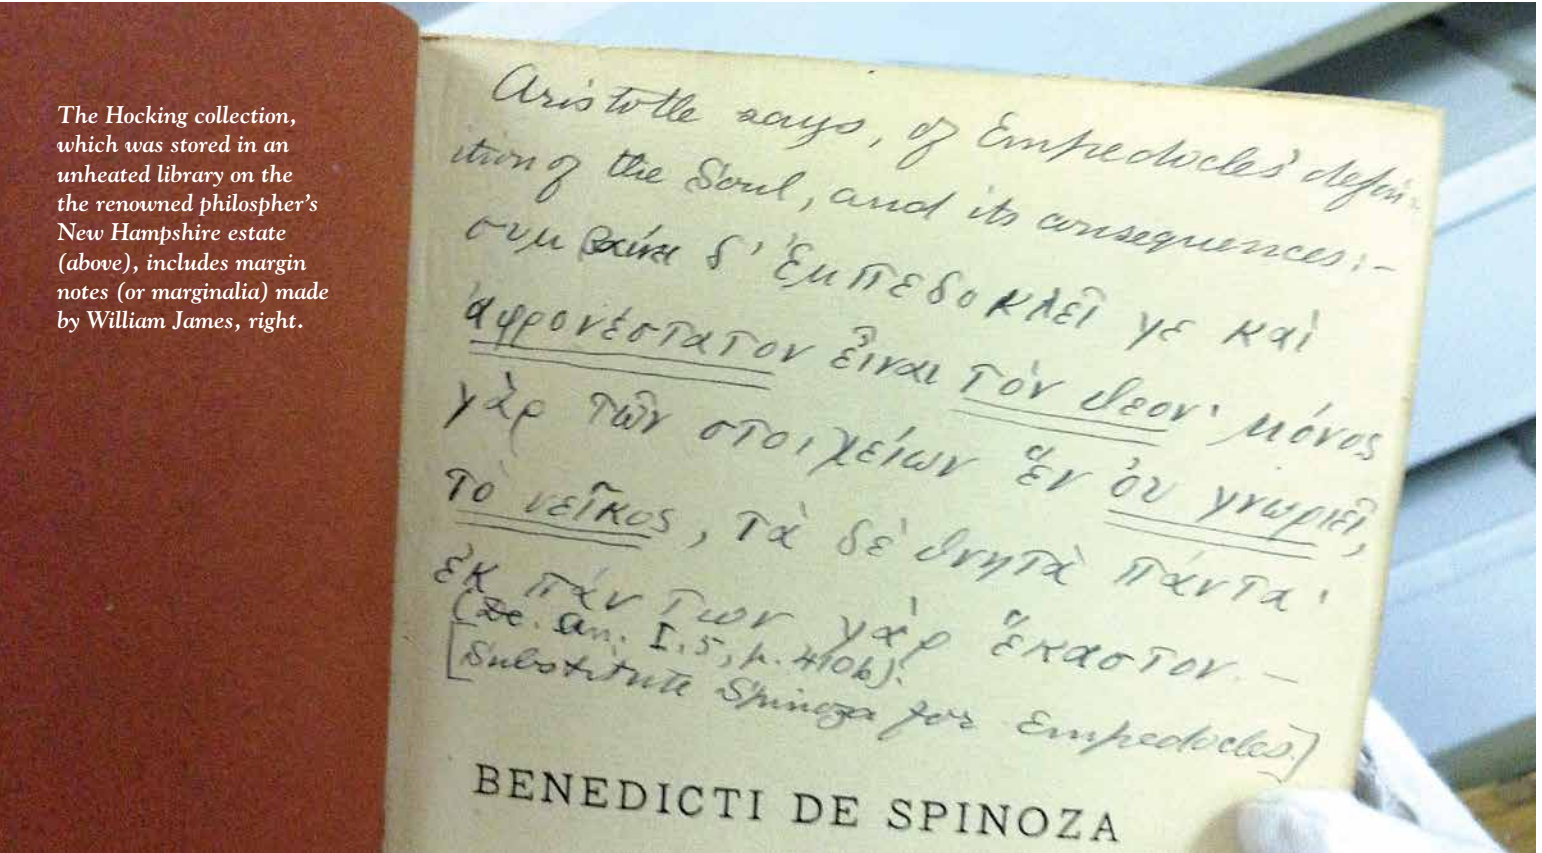 The Hocking collection,
which was stored in an
unheated library on the
the renowned philospher's
New Hampshire estate
(above), includes margin
notes (or marginalia) made
by William James, right.
Aristotle says, of Empedocles' defin-
ition of the Soul, and its consequences:-
συμβαίνει δ' Ἐμπεδοκλεῖ γε καὶ
ἀφρονέστατον εἶναι τὸν θεον· μόνος
γὰρ τῶν στοιχείων ἓν οὐ γνωριεῖ,
τὸ νεῖκος, τὰ δὲ θνητὰ πάντα·
ἐκ πάντων γὰρ ἕκαστον. —
(De. An. I, 5, p. 410b).
[Substitute Spinoza for Empedocles.]
BENEDICTI DE SPINOZA